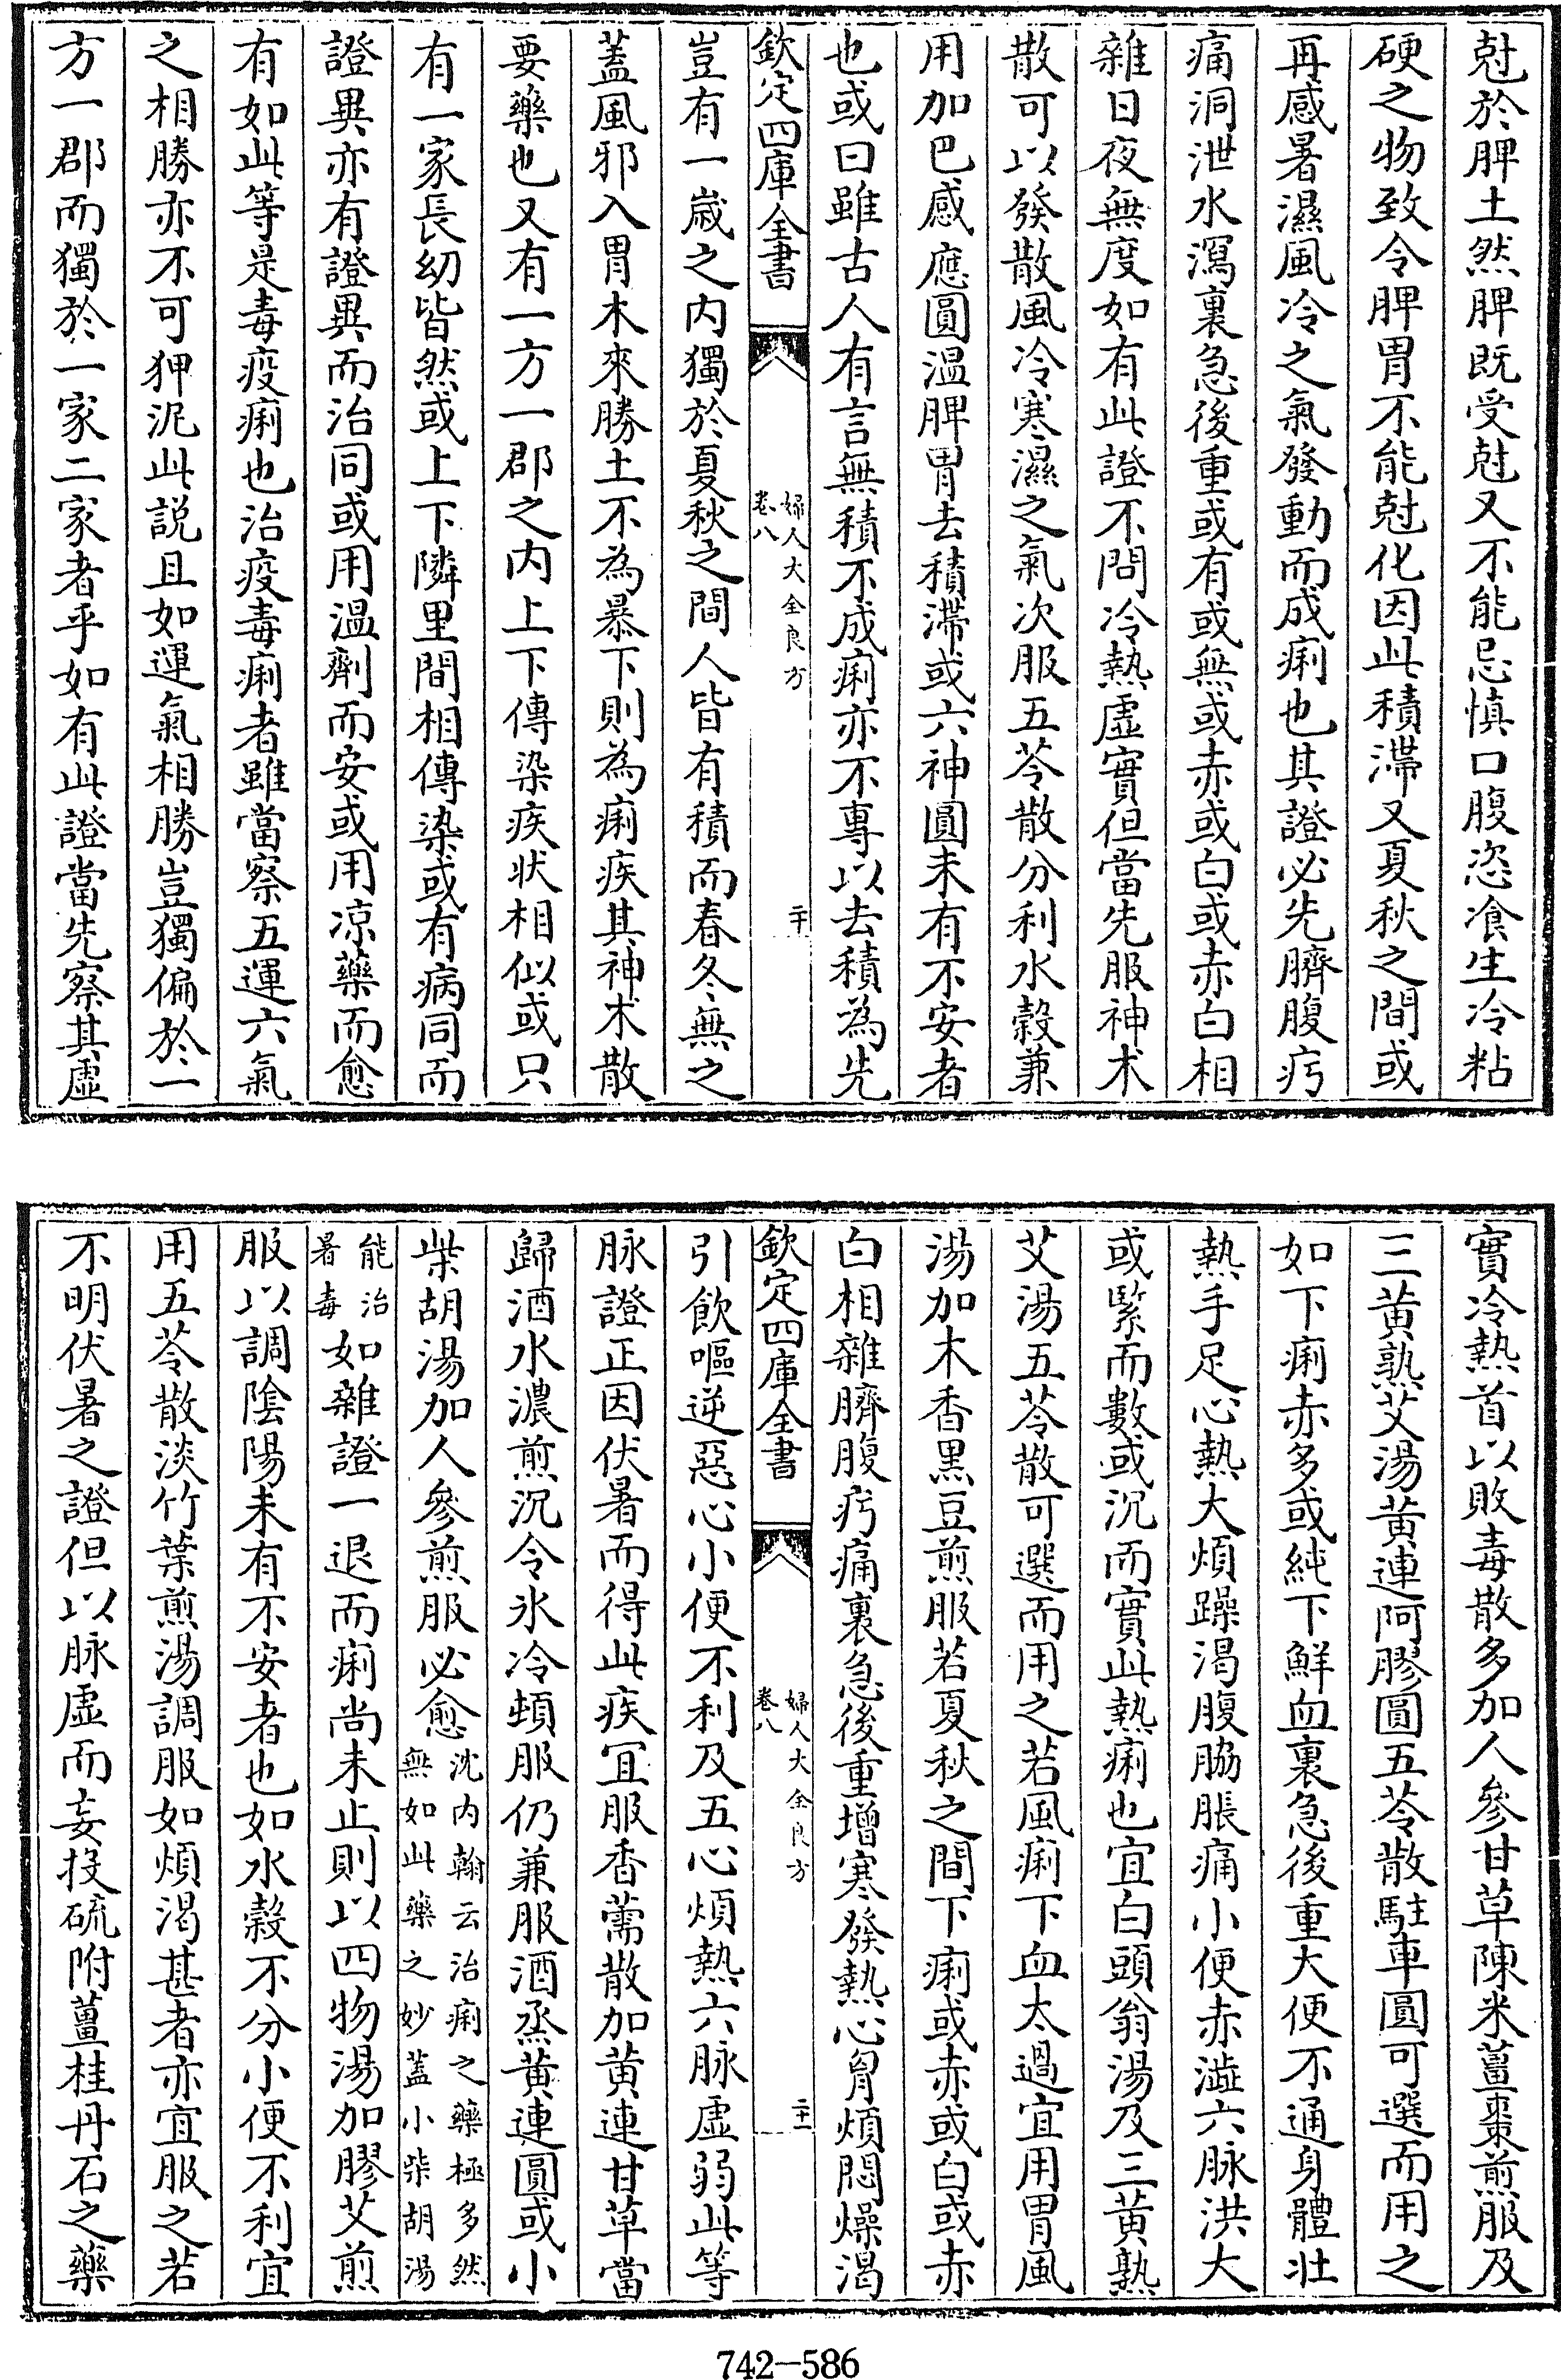 尅於脾土然脾既受尅又不能忌慎口腹恣飡生冷粘
硬之物致令脾胃不能尅化因此積滯又夏秋之間或
再感暑濕風冷之氣發動而成痢也其證必先臍腹㽲
痛洞泄水瀉裏急後重或有或無或赤或白或赤白相
雜日夜無度如有此證不問冷熱虛實但當先服神术
散可以發散風冷寒濕之氣次服五苓散分利水穀兼
用加巴感應圓温脾胃去積滯或六神圓未有不安者
也或曰雖古人有言無積不成痢亦不專以去積為先
欽定四庫全書
婦人大全良方
卷八
二十
豈有一嵗之内獨於夏秋之間人皆有積而春冬無之
蓋風邪入胃木來勝土不為暴下則為痢疾其神术散
要藥也又有一方一郡之内上下傳染疾状相似或只
有一家長幼皆然或上下隣里間相傳染或有病同而
證異亦有證異而治同或用温劑而安或用凉藥而愈
有如此等是毒疫痢也治疫毒痢者雖當察五運六氣
之相勝亦不可狎泥此説且如運氣相勝豈獨偏於一
方一郡而獨於一家二家者乎如有此證當先察其虛
實冷熱首以敗毒散多加人參甘草陳米薑棗煎服及
三黄熟艾湯黄連阿膠圓五苓散駐車圓可選而用之
如下痢赤多或純下鮮血裏急後重大便不通身體壯
熱手足心熱大煩躁渴腹脇脹痛小便赤澁六脉洪大
或緊而數或沉而實此熱痢也宜白頭翁湯及三黄熟
艾湯五苓散可選而用之若風痢下血太過宜用胃風
湯加木香黒豆煎服若夏秋之間下痢或赤或白或赤
白相雜臍腹㽲痛裏急後重增寒發熱心胷煩悶燥渴
欽定四庫全書
婦人大全良方
卷八
二十一
引飲嘔逆惡心小便不利及五心煩熱六脉虛弱此等
脉證正因伏暑而得此疾宜服香薷散加黄連甘草當
歸酒水濃煎沉令氷冷頓服仍兼服酒烝黄連圓或小
柴胡湯加人參煎服必愈沈内翰云治痢之藥極多然無如此藥之妙蓋小柴胡湯
能治暑毒如雜證一退而痢尚未止則以四物湯加膠艾煎
服以調陰陽未有不安者也如水穀不分小便不利宜
用五苓散淡竹葉煎湯調服如煩渴甚者亦宜服之若
不明伏暑之證但以脉虛而妄投硫附薑桂丹石之藥
742-586